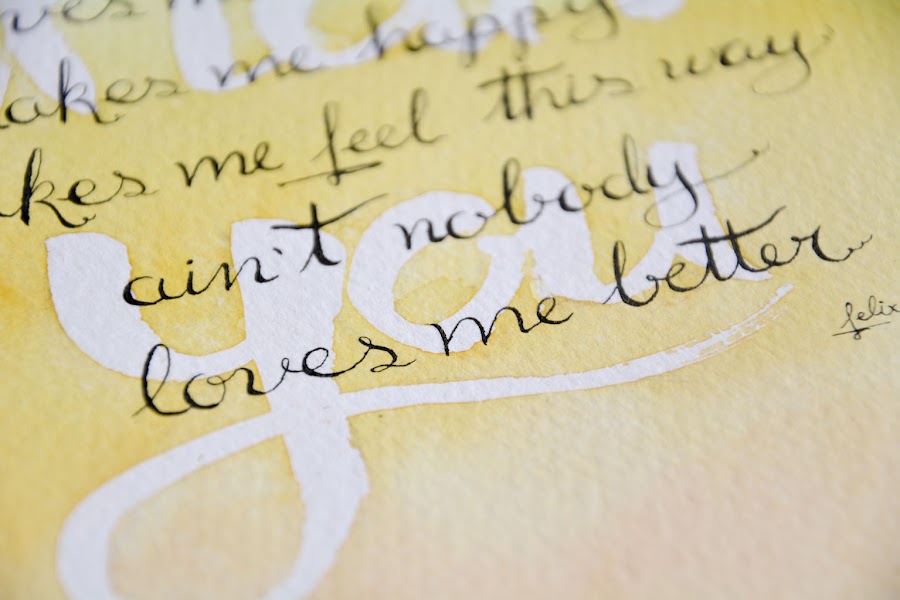 loves me
makes me happy
makes me feel this way
ain't nobody
loves me better
you
felix